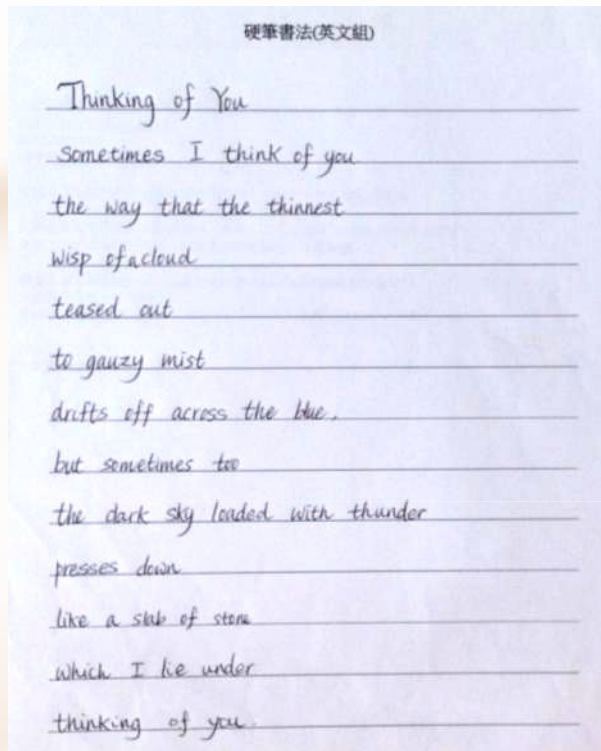 硬筆書法(英文組)
Thinking of You
sometimes I think of you
the way that the thinnest
wisp of a cloud
teased out
to gauzy mist
drifts off across the blue,
but sometimes too
the dark sky loaded with thunder
presses down
like a slab of stone
which I lie under
thinking of you.